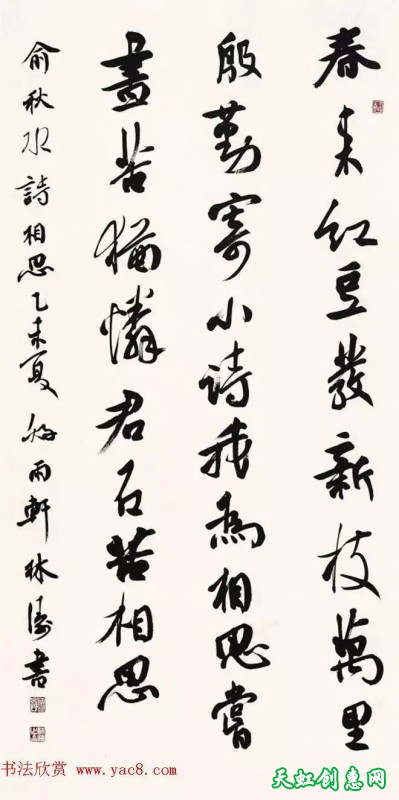 春來紅豆發新枝萬里
殷勤寄小詩我為相思嘗
盡苦猶憐君不苦相思
俞秋水詩相思乙未夏好雨軒林濤書
书法欣赏 www.yac8.com
天虹创惠网